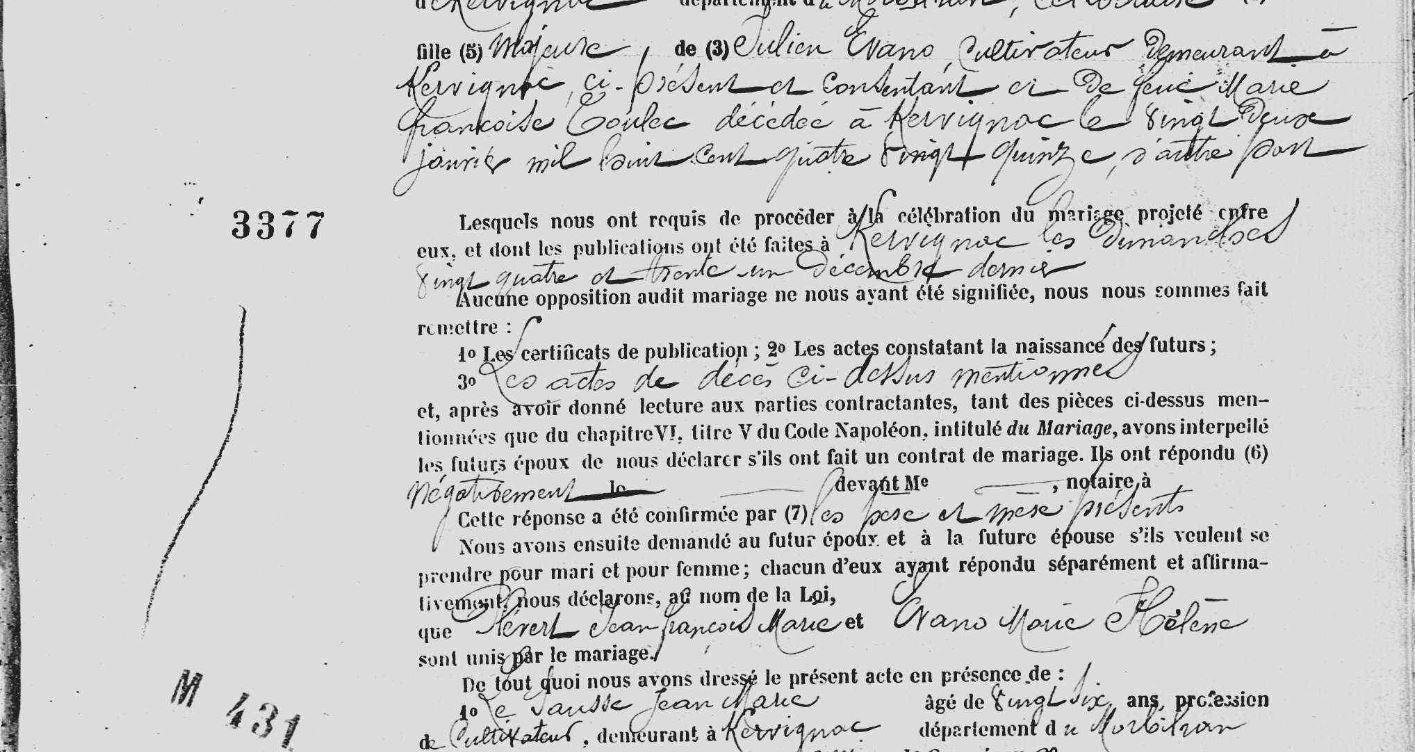 d'Kervignac département du Morbihan, célibataire
fille (5) Majeure, de (3) Julien Evano, Cultivateur demeurant à
Kervignac, ci-présent et consentant et de feue Marie
françoise Coulec décédée à Kervignac le vingt deux
janvier mil huit cent quatre vingt quinze, d'autre part
3377
Lesquels nous ont requis de procéder à la célébration du mariage projeté entre
eux, et dont les publications ont été faites à Kervignac les Dimanches
vingt quatre et trente un Décembre dernier
Aucune opposition audit mariage ne nous ayant été signifiée, nous nous sommes fait
remettre :
1o Les certificats de publication ; 2o Les actes constatant la naissance des futurs ;
3o Les actes de décès ci-dessus mentionnés
et, après avoir donné lecture aux parties contractantes, tant des pièces ci-dessus men-
tionnées que du chapitre VI, titre V du Code Napoléon, intitulé du Mariage, avons interpellé
les futurs époux de nous déclarer s'ils ont fait un contrat de mariage. Ils ont répondu (6)
négativement le devant Me , notaire à
Cette réponse a été confirmée par (7) les père et mère présents
Nous avons ensuite demandé au futur époux et à la future épouse s'ils veulent se
prendre pour mari et pour femme ; chacun d'eux ayant répondu séparément et affirma-
tivement, nous déclarons, au nom de la Loi,
que Jean françois Marie et Evano Marie Hélène
sont unis par le mariage.
De tout quoi nous avons dressé le présent acte en présence de :
1o Le Sausse Jean Marie âgé de vingt six ans, profession
de Cultivateur, demeurant à Kervignac département du Morbihan
M 431